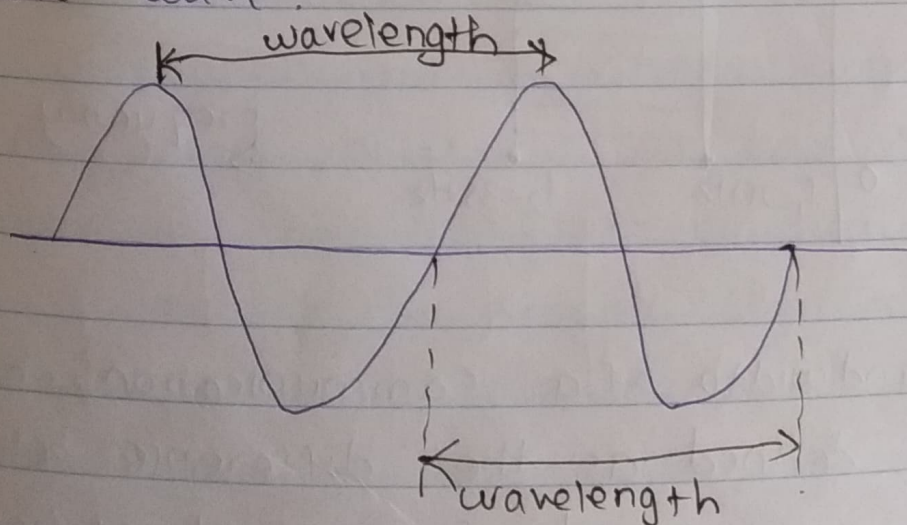 wavelength
wavelength